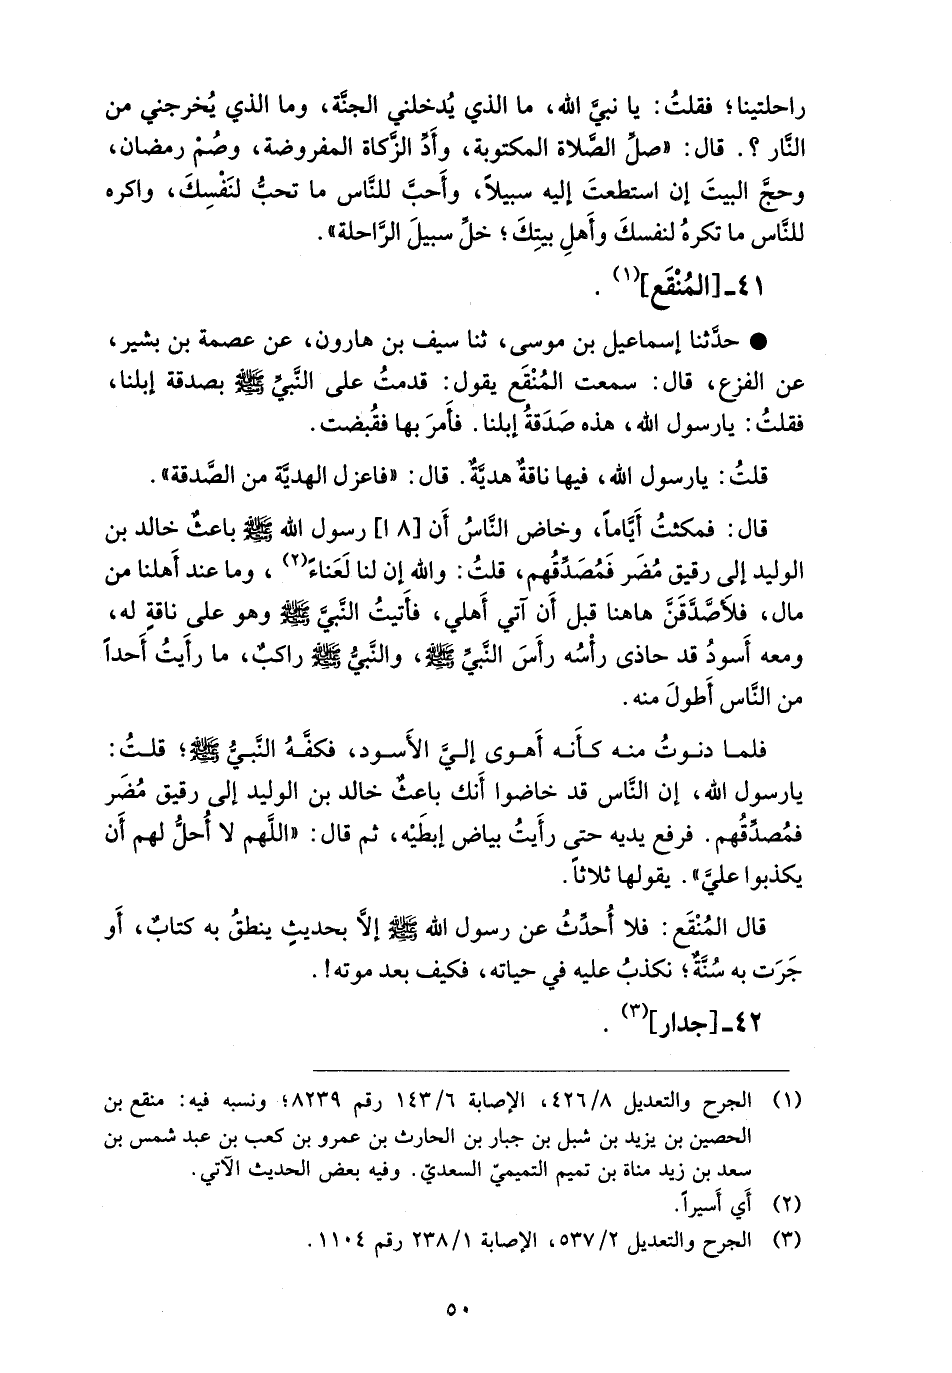 راحلتينا؛ فقلتُ: يا نبيَّ الله، ما الذي يُدخلني الجنَّة، وما الذي يُخرجني من
النَّار ؟. قال: «صلِّ الصَّلاة المكتوبة، وأدِّ الزَّكاة المفروضة، وصُمْ رمضان،
وحجَّ البيتَ إن استطعتَ إليه سبيلاً، وأَحبَّ للنَّاس ما تحبُّ لنَفْسِكَ، واكره
للنَّاس ما تكرهُ لنفسكَ وأهلِ بيتِكَ؛ خلِّ سبيلَ الرَّاحلة».
٤١ـ[المُنْقَع](١) .
● حدَّثنا إسماعيل بن موسى، ثنا سيف بن هارون، عن عصمة بن بشير،
عن الفزع، قال: سمعت المُنْقَع يقول: قدمتُ على النَّبيِّ ﷺ بصدقة إبلنا،
فقلتُ: يارسول الله، هذه صَدَقةُ إبلنا. فأَمرَ بها فقُبضت.
قلتُ: يارسول الله، فيها ناقةٌ هديَّةٌ. قال: «فاعزل الهديَّة من الصَّدقة».
قال: فمكثتُ أيَّاماً، وخاض النَّاسُ أن [٨ ا] رسول الله ﷺ باعثٌ خالد بن
الوليد إلى رقيق مُضَر فَمُصَدِّقُهم، قلتُ: والله إن لنا لَعَناءً(٢) ، وما عند أهلنا من
مال، فلأَصَّدَّقَنَّ هاهنا قبل أن آتي أهلي، فأتيتُ النَّبيَّ ﷺ وهو على ناقةٍ له،
ومعه أسودُ قد حاذى رأسُه رأسَ النَّبيِّ ﷺ، والنَّبيُّ ﷺ راكبٌ، ما رأيتُ أحداً
من النَّاس أَطولَ منه.
فلما دنوتُ منه كأَنه أَهوى إليَّ الأَسود، فكفَّهُ النَّبيُّ ﷺ؛ قلتُ:
يارسول الله، إن النَّاس قد خاضوا أَنك باعثٌ خالد بن الوليد إلى رقيق مُضَر
فمُصدِّقُهم. فرفع يديه حتى رأَيتُ بياض إبطَيْه، ثم قال: «اللَّهم لا أُحلُّ لهم أَن
يكذبوا عليَّ». يقولها ثلاثاً.
قال المُنْقَع: فلا أُحدِّثُ عن رسول الله ﷺ إلَّا بحديثٍ ينطقُ به كتابٌ، أَو
جَرَت به سُنَّةٌ؛ نكذبُ عليه في حياته، فكيف بعد موته!.
٤٢ـ[جدار](٣) .
(١) الجرح والتعديل ٤٢٦/٨، الإصابة ١٤٣/٦ رقم ٨٢٣٩؛ ونسبه فيه: منقع بن
الحصين بن يزيد بن شبل بن جبار بن الحارث بن عمرو بن كعب بن عبد شمس بن
سعد بن زيد مناة بن تميم التميميّ السعديّ. وفيه بعض الحديث الآتي.
(٢) أَي أَسيراً.
(٣) الجرح والتعديل ٥٣٧/٢، الإصابة ٢٣٨/١ رقم ١١٠٤ .
٥٠